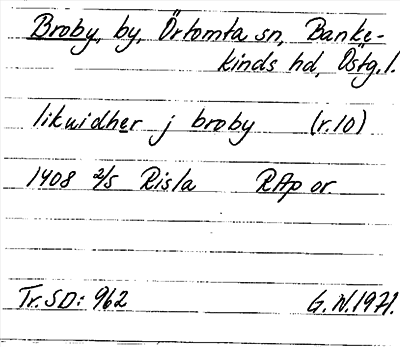 Broby, by, Örtomta sn, Banke-
kinds hd, Östg.l.
likuidher j broby (r.10)
1408 2/5 Risla RAp or
Tr. SD: 962 G.W.1971.